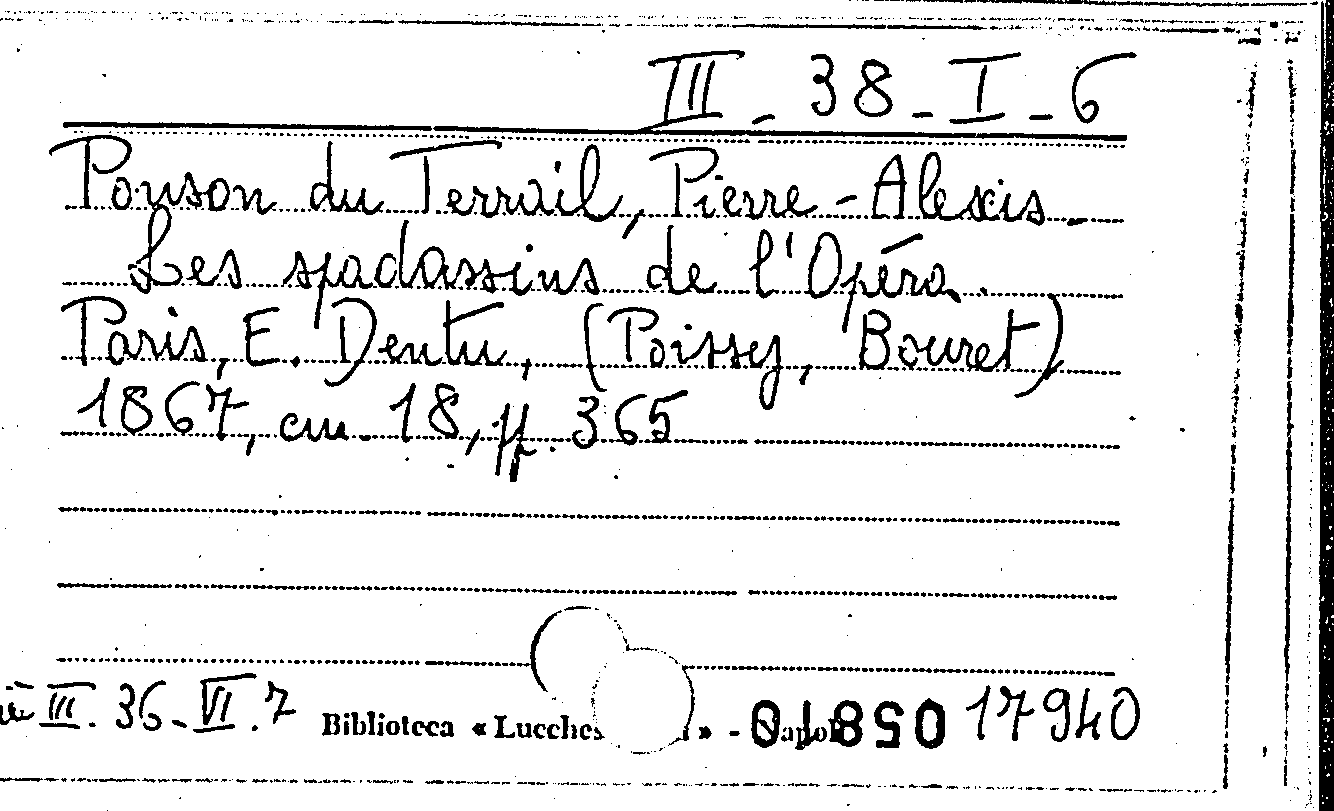 III - 38 - I - 6
Ponson du Terrail, Pierre-Alexis.
Les spadassins de l'Opéra.
Paris, E. Dentu, (Poissy, Bouret)
1867, cm. 18, pp. 365
III. 36 - VI. 7 Biblioteca « Lucches » - 17940